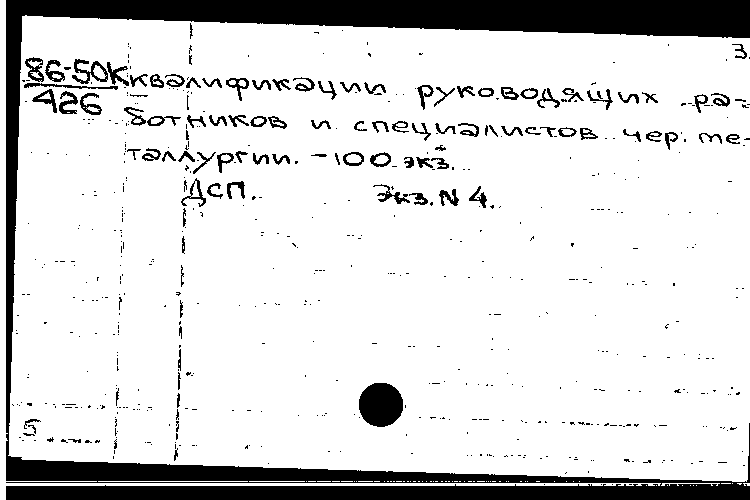 3.
86-50К квалификации руководящих ра-
426 ботников и специалистов чер. ме-
таллургии. - 100 экз.
ДСП. Экз. N 4.
5